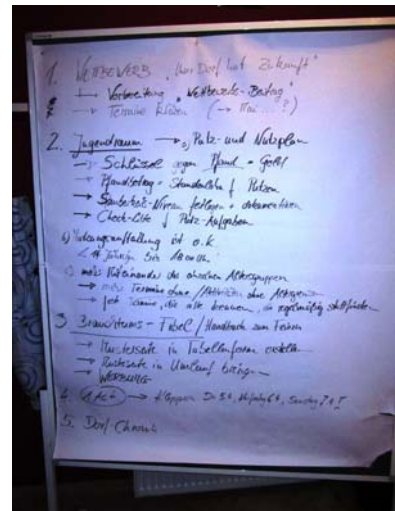 1. WETTBEWERB "Unser Dorf hat Zukunft"
→ Vorbereitung "Wettbewerbs-Beitrag"
→ Termine klären (→ Mai ...?)
2. Jugendraum → a) Putz- und Nutzplan
→ Schlüssel gegen Pfand = Geld
→ Pfandbetrag = Stundenlohn f. Putzen
→ Sauberkeits-Niveau festlegen + dokumentieren
→ Check-Liste f. Putz-Aufgaben
b) Nutzungsaufteilung ist o.k.
c) mehr Miteinander der einzelnen Altersgruppen
→ mehr Termine ohne
→ die alle kennen, die regelmäßig stattfinden
3. Brauchtums-Fibel / Handbuch zum Feiern
→ Musterseite in Tabellenform erstellen
→ Musterseite in Umlauf bringen
→ WERBUNG
4. →
5. Dorf Chronik